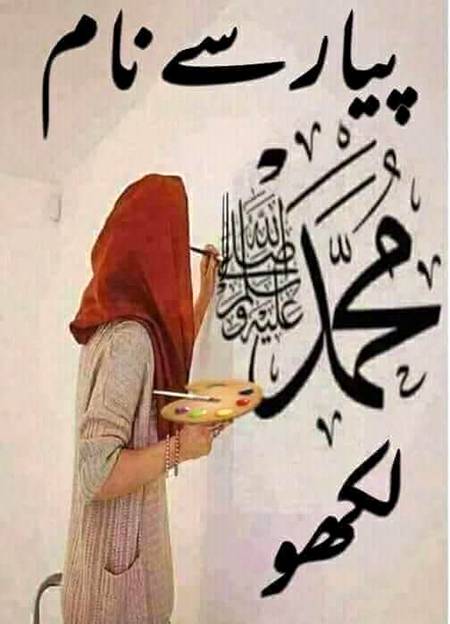 پیار سے نام
محمد
صلى الله عليه وسلم
لکھو